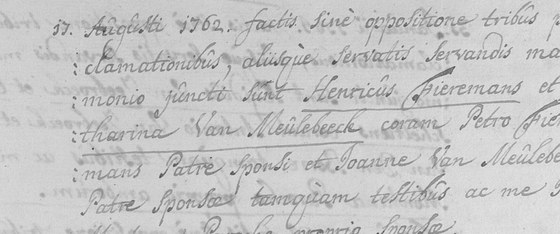 17. Augusti 1762. factis sinè oppositione tribus p
:clamationibus, aliisque servatis servandis ma
:monio juncti sunt Henricus Fieremans et
:tharina Van Meulebeeck coram Petro Fie
:mans Patre sponsi et Joanne Van Meuleb
Patre sponsæ tamquam testibus ac me J
propria sponsæ